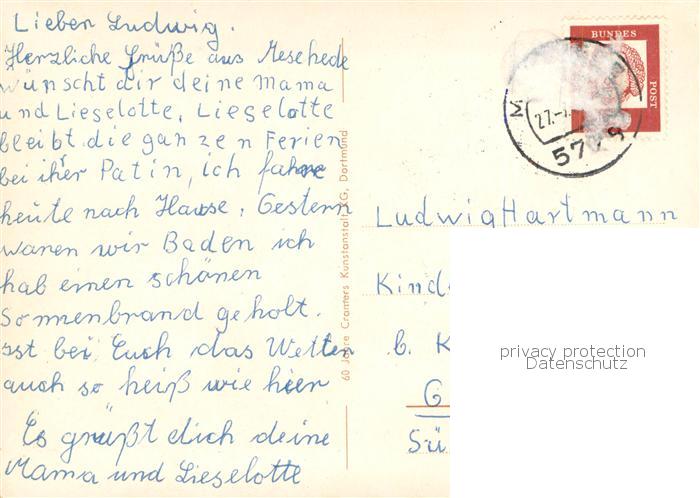 Lieber Ludwig.
Herzliche Grüße aus Meschede
wünscht dir deine Mama
und Lieselotte. Lieselotte
bleibt die ganzen Ferien
bei ihrer Patin, ich fahre
heute nach Hause. Gestern
waren wir Baden ich
hab einen schönen
Sonnenbrand geholt.
Ist bei Euch das Wetter
auch so heiß wie hier
Es grüßt dich deine
Mama und Lieselotte
60 Jahre Cramers Kunstanstalt KG, Dortmund
BUNDES
POST
M
27.-7.
57
Ludwig Hartmann
Kind
b. K
G
Sü
privacy protection
Datenschutz